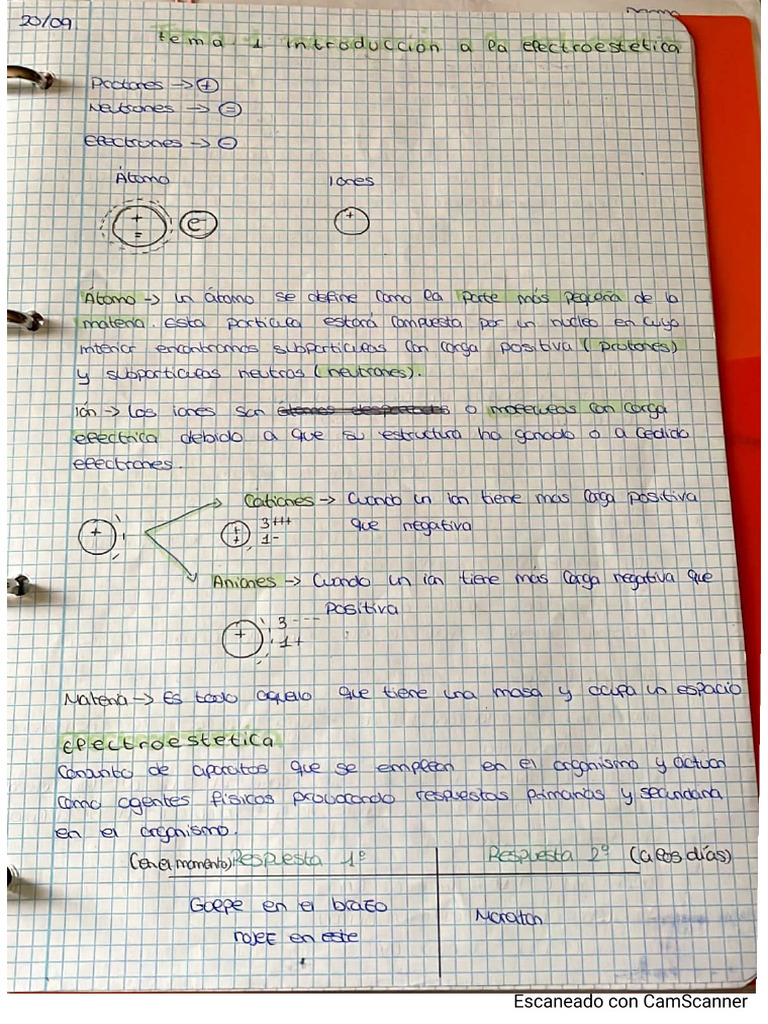 20/09
tema 1 introducción a la electroestetica
Protones -> +
Neutrones -> =
electrones -> -
Átomo Iones
+ = e- +
Átomo -> Un átomo se define como la parte más pequeña de la
materia. Esta particula estará compuesta por un nucleo en cuyo
interior encontramos subparticulas con carga positiva (protones)
y subparticulas neutras (neutrones).
Ión -> Los iones son o moleculas con carga
electrica debido a que su estructura ha ganado o a cedido
electrones.
Cationes -> Cuando un ion tiene mas carga positiva
+ + + 3+++ 1- que negativa
Aniones -> Cuando un ion tiene más carga negativa que
Positiva
+ 3--- 1+
Materia -> Es todo aquelo que tiene una masa y ocupa un espacio
electroestetica
Conjunto de aparatos que se emplean en el organismo y actuan
como agentes físicos provocando respuestas primarias y secundaria
en el organismo.
(en el momento) Respuesta 1º Respuesta 2º (a los días)
Golpe en el brazo Moraton
rojez en este
Escaneado con CamScanner